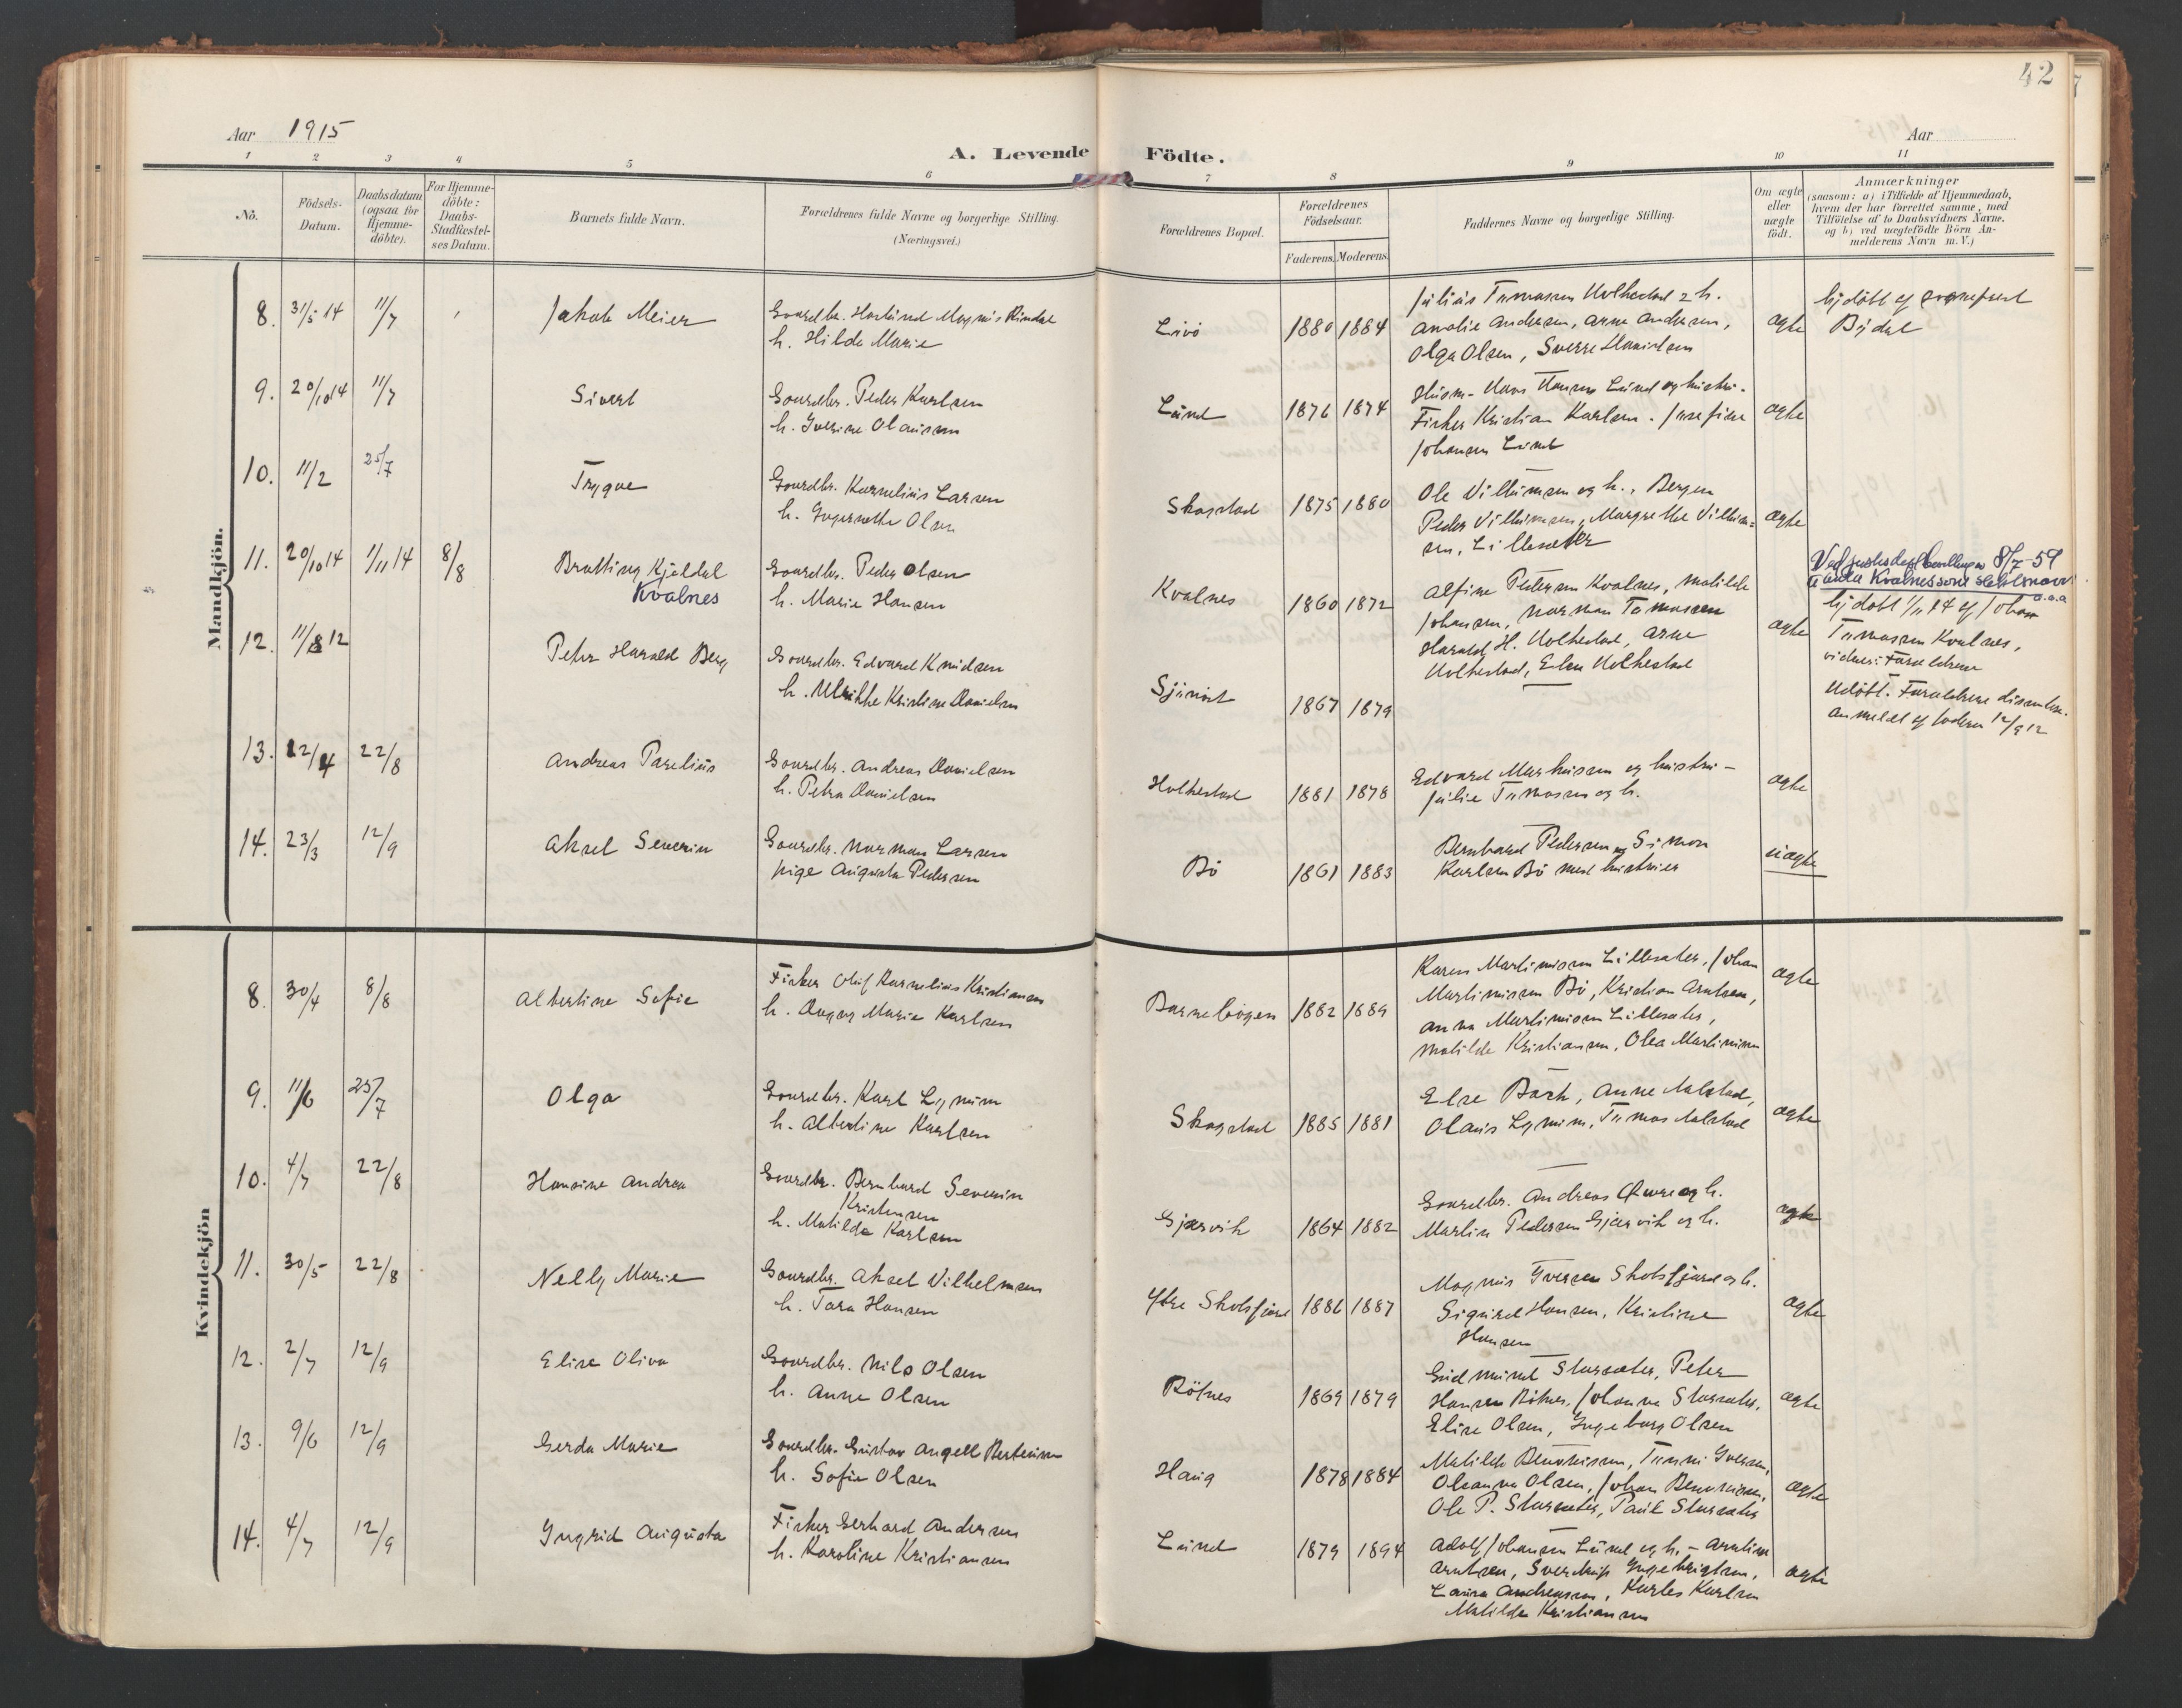 42
Aar 1915
Aar
A. Levende Födte.
1 2 3 4 5 6 7 8 9 10 11
Nô.
Födsels-Datum.
Daabsdatum (ogsaa for Hjemme-döbte).
For Hjemme-döbte: Daabs-Stadfæstel-ses Datum.
Barnets fulde Navn.
Forældrenes fulde Navne og borgerlige Stilling. (Næringsvei.)
Forældrenes Bopæl.
Forældrenes Födselsaar.
Faderens. Moderens.
Faddernes Navne og borgerlige Stilling.
Om ægte eller uægte födt.
Anmærkninger
(saasom: a) i Tilfælde af Hjemmedaab,
hvem der har forrettet samme, med
Tilföielse af to Daabsvidners Navne.
og b) ved uægtefödte Börn An-
melderens Navn m. V.)
Mandkjön.
8. 31/5 14 11/7 Jakob Meier
Gaardbr. Magnus Rindal
h. Hilda Marie
Livö 1880 1884
Julius Tumassen Holhestad & h.
Amalie Andersen, Arne Andersen,
Olga Olsen, Sverre Danielsen
ægte
hjdöbt af
9. 20/10 14 11/7 Sivert
Gaardbr. Peder Karlsen
h. Iverine Olausen
Lund 1876 1874
Husm. Hans Hansen Lund og hustru.
Fisker Kristian Karlsen. Josefine
Johansen Lund
ægte
10. 11/2 25/7 Trygve
Gaardbr. Kornelius Larsen
h. Olsen
Skogstad 1875 1880
Ole Villumsen og h., Bergen
Peder Villumsen, Margrethe Villum-
sen, Lillesæter
ægte
11. 20/10 14 1/11 14 8/8 Bratting Kjeldal
Kvalnes
Gaardbr. Peder Olsen
h. Marie Hansen
Kvalnes 1860 1872
Alfine Pedersen Kvalnes, Matilde
Johansen, Norman Tomassen
Harald H. Holhestad, Arne
Holhestad, Elen Holhestad
ægte
Ved justisdep bevilling av 8/7-59
å anta Kvalnes som slektsnavn
a.a.a
hjdöbt 1/11 14 af Johan
Tumassen Kvalnes,
vidner: Forældrene
12. 11/8 12 Peter Harald Berg
Gaardbr. Edvard Knudsen
h. Ulrikke Kristine Danielsen
1867 1879
Udöbt. Forældrene dissentere.
anmeldt af faderen 12/9 12
13. 22/4 22/8 Andreas Parelius
Gaardbr. Andreas Danielsen
h. Petra Danielsen
Holhestad 1881 1878
Edvard Markussen og hustru -
Julie Tumassen og h.
ægte
14. 23/3 12/9 Aksel Severin
Gaardbr. Norman Larsen
pige Augusta Pedersen
Bö 1861 1883
Bernhard Pedersen og Simon
Karlsen Bö med hustruer
uægte
Kvindekjön
8. 30/4 8/8 Albertine Sofie
Fisker Oluf Kornelius Kristiansen
h. Dagny Marie Karlsen
Barnebögen 1882 1889
Karen Martinussen Lillesæter, Johan
Martinussen Bö, Kristian Arntsen,
Anna Martinussen Lillesæter,
Matilde Kristiansen, Olea Martinussen
ægte
9. 11/6 25/7 Olga
Gaardbr. Karl Lynum
h. Albertine Karlsen
Skogstad 1885 1881
Else Bark, Anne Aalstad,
Olaus Lynum, Tumas Aalstad
ægte
10. 4/7 22/8 Hansine Andrea
Gaardbr. Bernhard Severin
Kristensen
h. Matilda Karlsen
Gjærvik 1864 1882
Gaardbr. Andreas og h.
Martin Pedersen Gjærvik og h.
ægte
11. 30/5 22/8 Nelly Marie
Gaardbr. Aksel Vilhelmsen
h. Tora Hansen
Ytre Skotsfjord 1886 1887
Magnus Iversen Skotsfjord og h.
Sigurd Hansen, Kristine
Hansen
ægte
12. 2/7 12/9 Elise Oliva
Gaardbr. Nils Olsen
h. Anne Olsen
Rötnes 1869 1879
Gudmund Storsæter, Peter
Hansen Rötnes, Johanna Storsæter,
Elise Olsen, Ingeborg Olsen
ægte
13. 9/6 12/9 Gerda Marie
Gaardbr. Gustav Angell Berteussen
h. Sofie Olsen
Haug 1878 1884
Matilde Benonisen, Iversen,
Oleanna Olsen, Johan Benonisen,
Ole P. Storsæter, Paul Storsæter
ægte
14. 4/7 12/9 Ingrid Augusta
Fisker Gerhard Andersen
h. Karoline Kristiansen
Lund 1879 1894
Adolf Johansen Lund og h. -
Arntsen, Ingebrigtsen,
Laura Andreassen, Karles Karlsen
Matilde Kristiansen
ægte